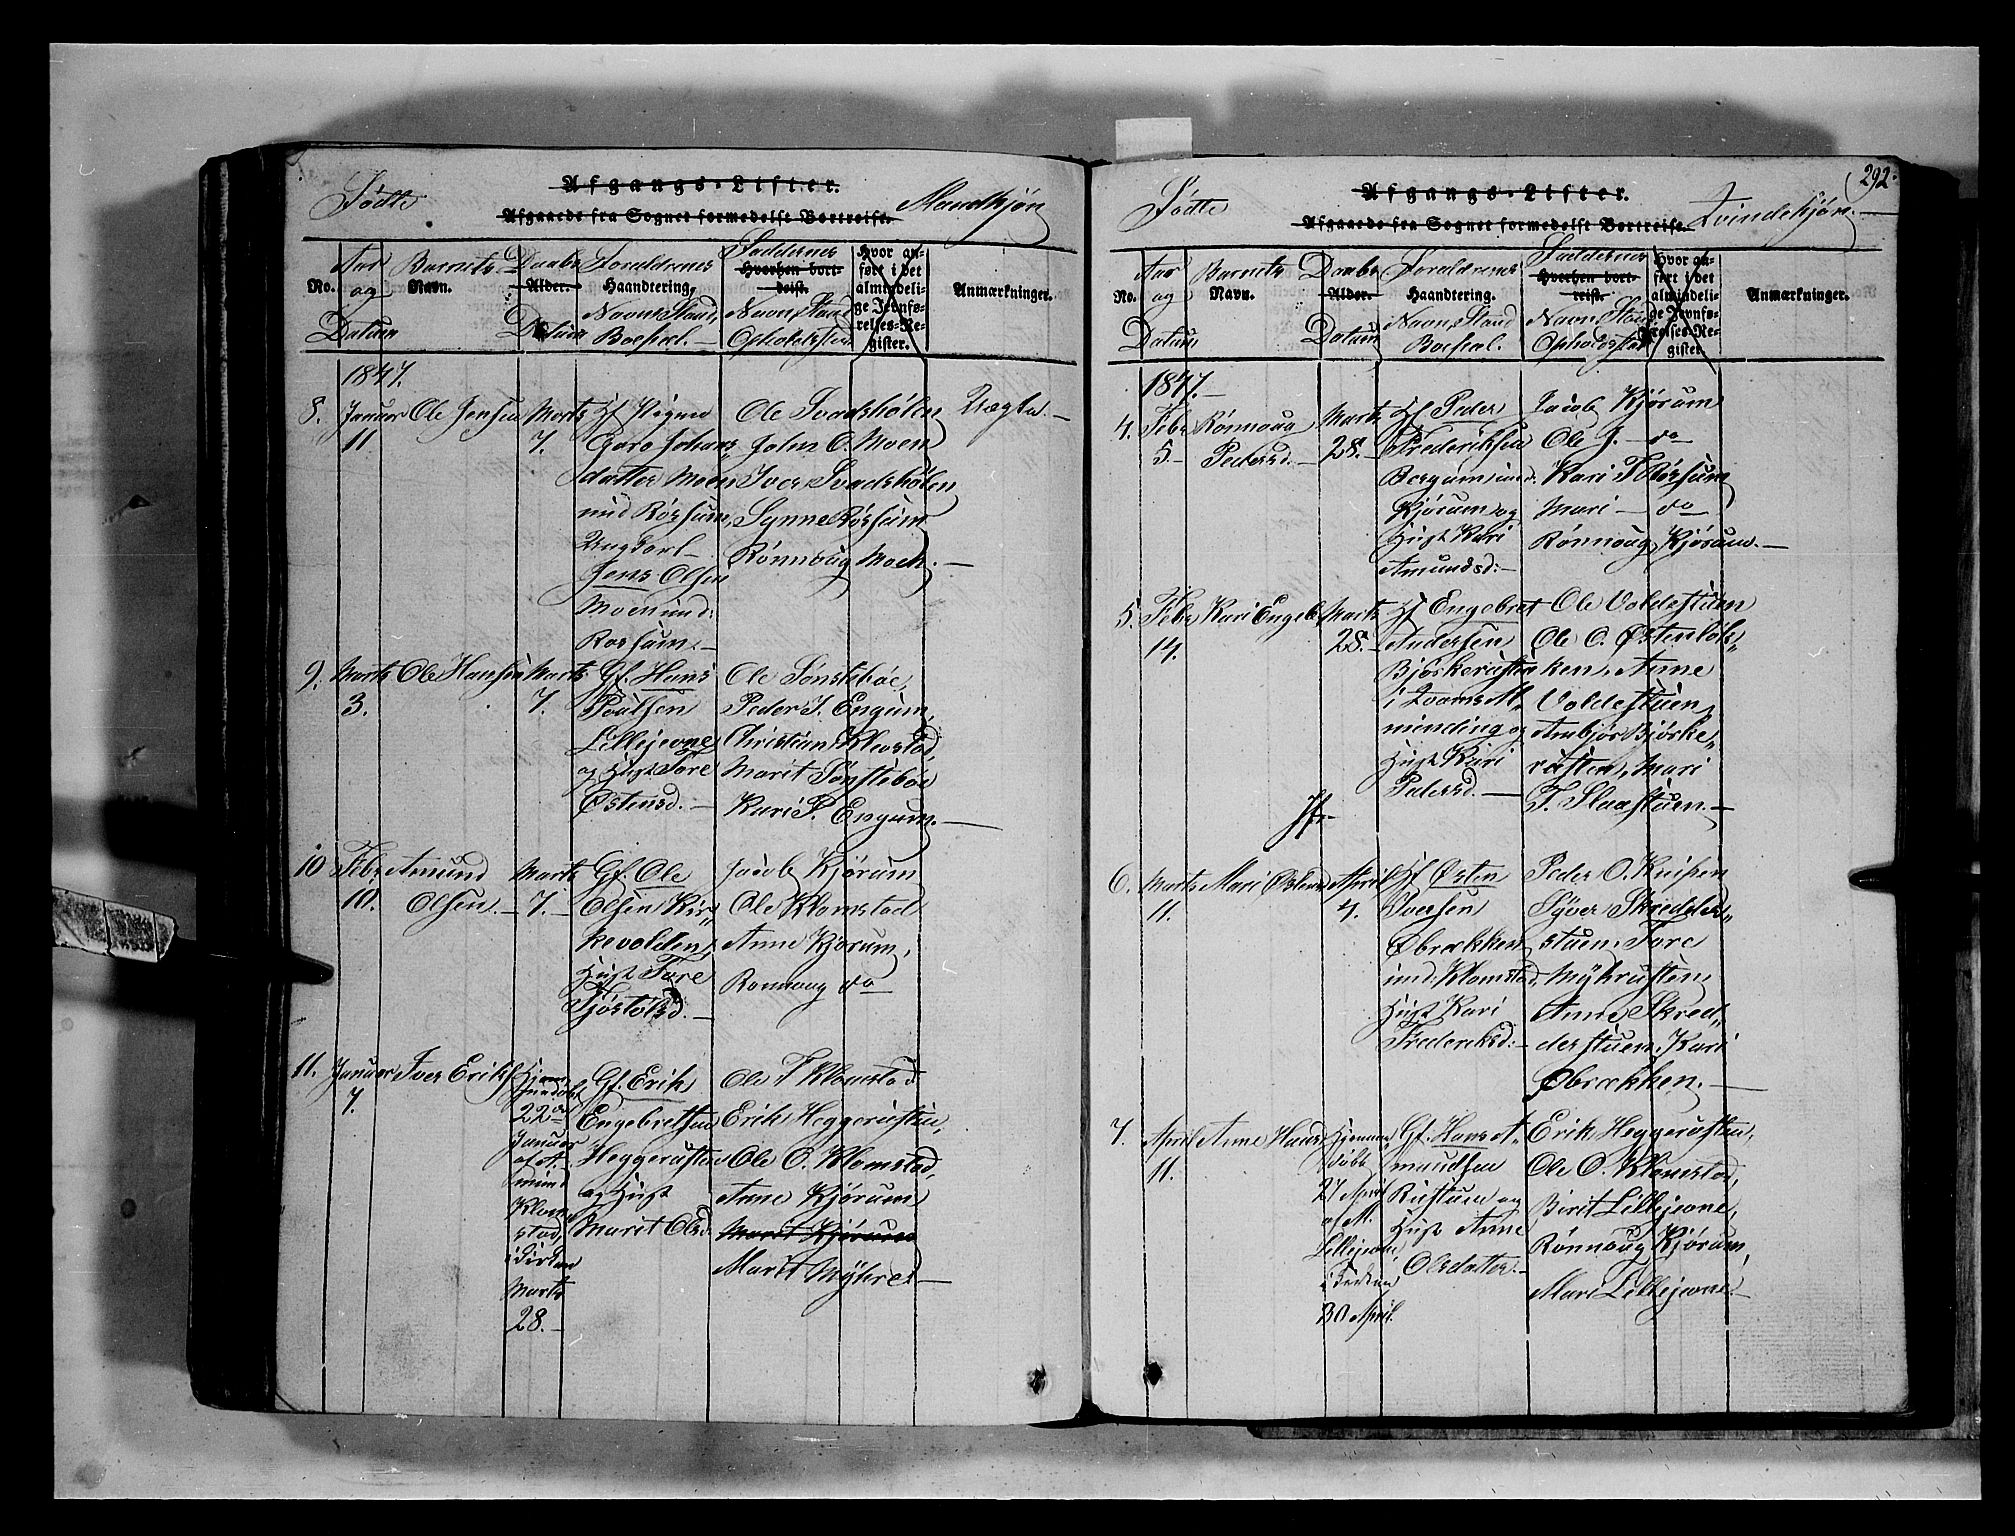 Afgangs-Lister.
Födte
Mandkjön
Afgaaede fra Sognet formedelst Bortreise.
No.
Aar og Datum
Barnets Navn.
Daabs Alder. Datum
Forældrenes Haandtering, Navn, Stand, Bopæl.
Faddernes Hvorhen bortreist. Navn, Stand Opholdssted
Hvor anført i det almindelige Jevnførelses-Register.
Anmærkninger.
1847.
8.
Januar
11
Ole Jensen
Marts
7.
Johans
datter Moen
und Rössum,
Ungkarl
Jens Olsen
Moen und:
Rossum.
Ole Svadshölen
John O. Moen
Iver Svadshölen
Synne Rössum
Rönnoug Moen.
Uægte.
9.
Marts
3.
Ole Hansen
Marts
7.
Gf. Hans
Poulsen
Lillejevne
og Hust Tore
Östensd.
Ole Sönsteböe,
Peder I. Engum,
Christian Klevstad
Marit Sönsteböe
Kari P. Engum.
10
Febr
10.
Amund
Olsen.
Marts
7.
Gf. Ole
Olsen Kir„
kevolden,
Hust Tore
Tjöstolsd.
Jacob Kjörum
Ole Klomstad
Anne Kjörum,
Ronnoug do
11.
Januar
7.
Iver Eriks
Hjemme
döbt
22de
Januar
af A.
mund
Klom
stad,
i Kirken
Marts
28.
Gf. Erik
Engebretsen
Heggerusten
og Hust
Marit Olsd.
Ole T Klomstad
Erik Heggerusten,
Ole O. Klomstad,
Anne Kjörum
Marit Kjörum
Marit Myhre.
292.
Afgangs-Lister.
Födte
Qvindekjön.
Afgaaede fra Sognet formedelst Bortreise.
No.
Aar og Datum
Barnets Navn.
Daabs Alder. Datum
Forældrenes Haandtering. Navn, Stand Bopæl.
Faddernes Hvorhen bortreist. Navn, Stand Opholdssted
Hvor anført i det almindelige Jevnførelses-Register.
Anmærkninger.
1847.
4.
Febr
5
Rönnoug
Pedersd.
Marts
28.
Hf Peder
Frederiksen
Bergum und:
Kjörum og
Hust Kari
Amundsd:
Jacob Kjörum
Ole J. do
Kari T Rössum
Mari do
Rönnoug Kjörum.
5.
Febr
14.
Kari Engebr
Marts
28.
Hf Engebret
Andersen
Björkerusten
i Qvams Al„
minding og
Hust Kari
Pedersd.
Ole Voldestuen
Ole O. Östenlök„
ken, Anne
Voldestuen,
Ambjör Björke„
rusten, Mari
T. Slaastuen.
6.
Marts
11.
Mari Östens
April
4.
Hf Östen
Iversen
Öbrækken
und: Klomstad,
Hust Kari
Frederiksd:
Peder O. Kruken
Syver Skredder„
stuen, Tore
Myhrusten,
Anne Skred„
derstuen, Kari
Öbrækken.
7.
April
11.
Anne Hans
Hjemme
döbt
27 April
af M.
Lillejevne
i Kirken
30 April.
Gf. Hans A„
mundsen
Rustum og
Hust Anne
Olsdatter.
Erik Heggerusten,
Ole O. Klomstad,
Birit Lillejevne,
Rönnoug Kjörum,
Mari Lillejevne